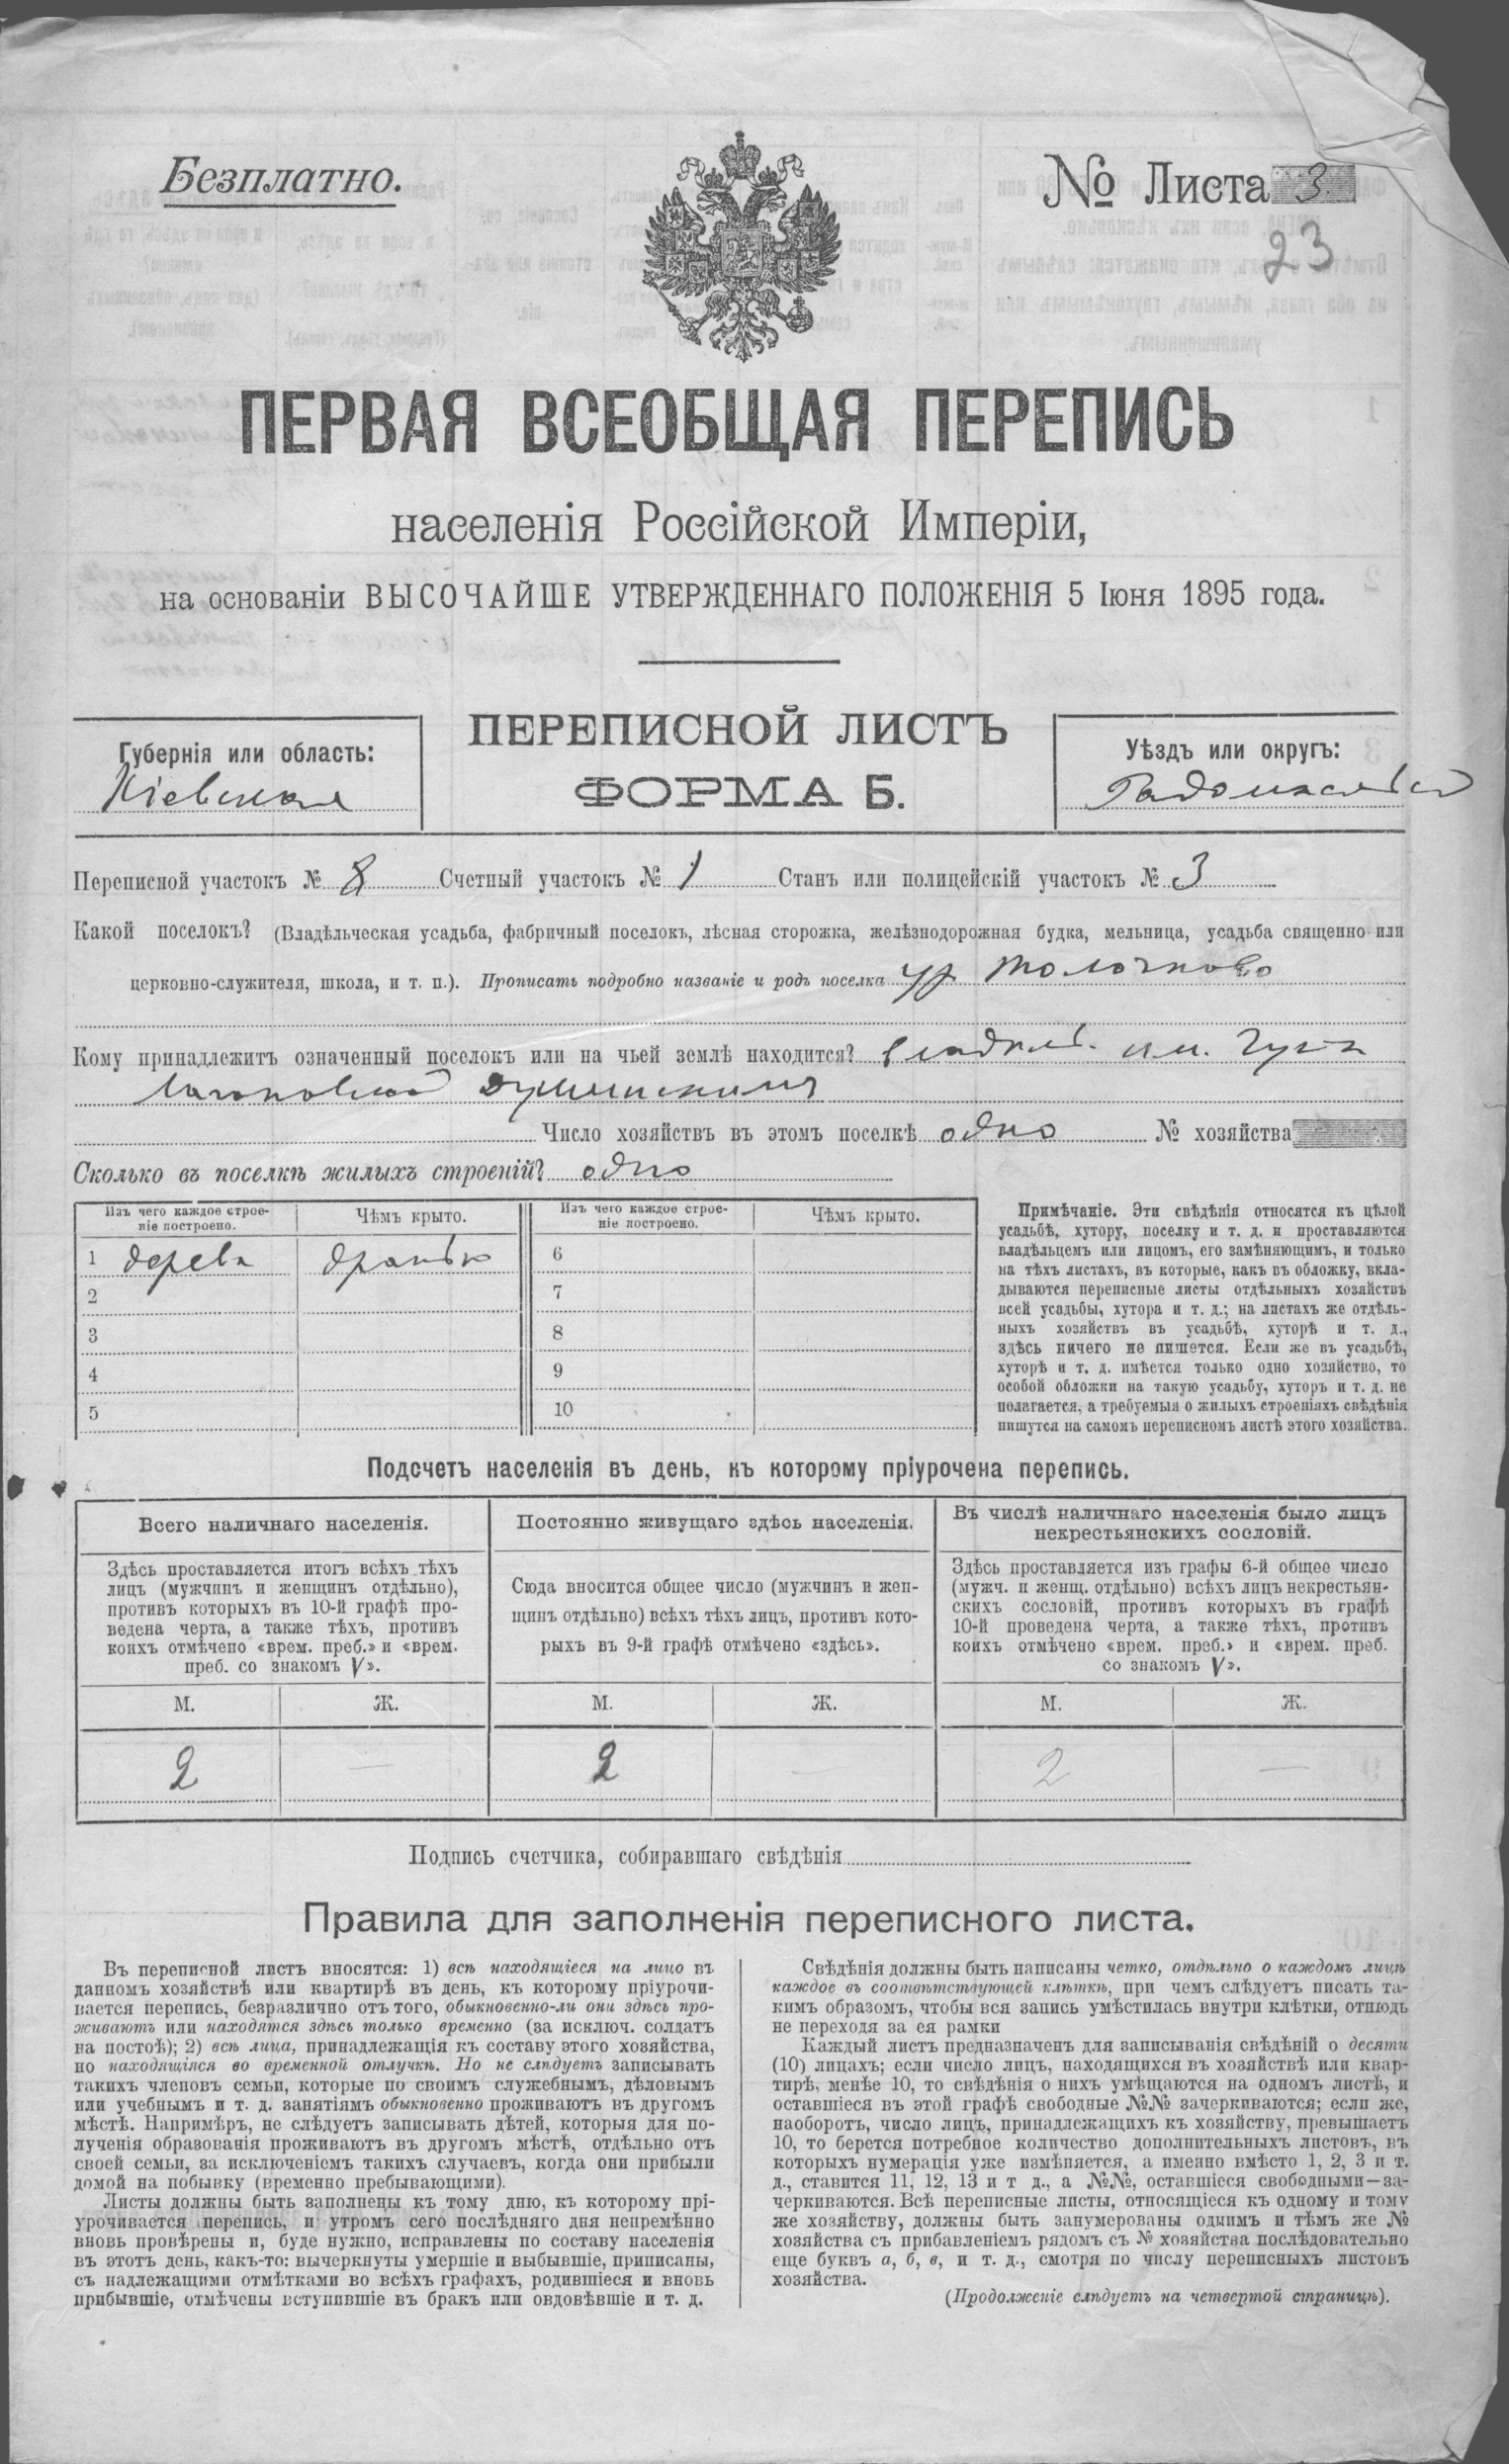 Безплатно.
№ Листа 3
23
ПЕРВАЯ ВСЕОБЩАЯ ПЕРЕПИСЬ
населенія Россійской Имперіи,
на основаніи ВЫСОЧАЙШЕ УТВЕРЖДЕННАГО ПОЛОЖЕНІЯ 5 Іюня 1895 года.
Губернія или область:
Кіевская
ПЕРЕПИСНОЙ ЛИСТЪ
ФОРМА Б.
Уѣздъ или округъ:
Переписной участокъ № 8 Счетный участокъ № 1 Станъ или полицейскій участокъ № 3
Какой поселокъ? (Владѣльческая усадьба, фабричный поселокъ, лѣсная сторожка, желѣзнодорожная будка, мельница, усадьба священно-или
церковно-служителя, школа, и т. п.). Прописать подробно названіе и родъ поселка ур.
Кому принадлежитъ означенный поселокъ или на чьей землѣ находится?
Число хозяйствъ въ этомъ поселкѣ одно № хозяйства
Сколько въ поселкѣ жилыхъ строеній? одно
Изъ чего каждое строе-
ніе построено.
Чѣмъ крыто.
Изъ чего каждое строе-
ніе построено.
Чѣмъ крыто.
1 дерева
6
2
7
3
8
4
9
5
10
Примѣчаніе. Эти свѣдѣнія относятся къ цѣлой
усадьбѣ, хутору, поселку и т. д. и проставляются
владѣльцемъ или лицомъ, его замѣняющимъ, и только
на тѣхъ листахъ, въ которые, какъ въ обложку, вкла-
дываются переписные листы отдѣльныхъ хозяйствъ
всей усадьбы, хутора и т. д.; на листахъ же отдѣль-
ныхъ хозяйствъ въ усадьбѣ, хуторѣ и т. д.,
здѣсь ничего не пишется. Если же въ усадьбѣ,
хуторѣ и т. д. имѣется только одно хозяйство, то
особой обложки на такую усадьбу, хуторъ и т. д. не
полагается, а требуемыя о жилыхъ строеніяхъ свѣдѣнія
пишутся на самомъ переписномъ листѣ этого хозяйства.
Подсчетъ населенія въ день, къ которому пріурочена перепись.
Всего наличнаго населенія.
Постоянно живущаго здѣсь населенія.
Въ числѣ наличнаго населенія было лицъ
некрестьянскихъ сословій.
Здѣсь проставляется итогъ всѣхъ тѣхъ
лицъ (мужчинъ и женщинъ отдѣльно),
противъ которыхъ въ 10-й графѣ про-
ведена черта, а также тѣхъ, противъ
коихъ отмѣчено «врем. преб.» и «врем.
преб. со знакомъ V».
Сюда вносится общее число (мужчинъ и жен-
щинъ отдѣльно) всѣхъ тѣхъ лицъ, противъ кото-
рыхъ въ 9-й графѣ отмѣчено «здѣсь».
Здѣсь проставляется изъ графы 6-й общее число
(мужч. и женщ. отдѣльно) всѣхъ лицъ некрестьян-
скихъ сословій, противъ которыхъ въ графѣ
10-й проведена черта, а также тѣхъ, противъ
коихъ отмѣчено «врем. преб.» и «врем. преб.
со знакомъ V».
М. Ж. М. Ж. М. Ж.
2 — 2 — 2 —
Подпись счетчика, собиравшаго свѣдѣнія
Правила для заполненія переписного листа.
Въ переписной листъ вносятся: 1) всѣ находящіеся на лицо въ
данномъ хозяйствѣ или квартирѣ въ день, къ которому пріурочи-
вается перепись, безразлично отъ того, обыкновенно-ли они здѣсь про-
живаютъ или находятся здѣсь только временно (за исключ. солдатъ
на постоѣ); 2) всѣ лица, принадлежащія къ составу этого хозяйства,
но находящіяся во временной отлучкѣ. Но не слѣдуетъ записывать
такихъ членовъ семьи, которые по своимъ служебнымъ, дѣловымъ
или учебнымъ и т. д. занятіямъ обыкновенно проживаютъ въ другомъ
мѣстѣ. Напримѣръ, не слѣдуетъ записывать дѣтей, которыя для по-
лученія образованія проживаютъ въ другомъ мѣстѣ, отдѣльно отъ
своей семьи, за исключеніемъ такихъ случаевъ, когда они прибыли
домой на побывку (временно пребывающими).
Листы должны быть заполнены къ тому дню, къ которому прі-
урочивается перепись, и утромъ сего послѣдняго дня непремѣнно
вновь провѣрены и, буде нужно, исправлены по составу населенія
въ этотъ день, какъ-то: вычеркнуты умершіе и выбывшіе, приписаны,
съ надлежащими отмѣтками во всѣхъ графахъ, родившіеся и вновь
прибывшіе, отмѣчены вступившіе въ бракъ или овдовѣвшіе и т. д.
Свѣдѣнія должны быть написаны четко, отдѣльно о каждомъ лицѣ
каждое въ соотвѣтствующей клѣткѣ, при чемъ слѣдуетъ писать та-
кимъ образомъ, чтобы вся запись умѣстилась внутри клѣтки, отнюдь
не переходя за ея рамки
Каждый листъ предназначенъ для записыванія свѣдѣній о десяти
(10) лицахъ; если число лицъ, находящихся въ хозяйствѣ или квар-
тирѣ, менѣе 10, то свѣдѣнія о нихъ умѣщаются на одномъ листѣ, и
оставшіеся въ этой графѣ свободные №№ зачеркиваются; если же,
наоборотъ, число лицъ, принадлежащихъ къ хозяйству, превышаетъ
10, то берется потребное количество дополнительныхъ листовъ, въ
которыхъ нумерація уже измѣняется, а именно вмѣсто 1, 2, 3 и т.
д., ставится 11, 12, 13 и т д., а №№, оставшіеся свободными—за-
черкиваются. Всѣ переписные листы, относящіеся къ одному и тому
же хозяйству, должны быть занумерованы однимъ и тѣмъ же №
хозяйства съ прибавленіемъ рядомъ съ № хозяйства послѣдовательно
еще буквъ а, б, в, и т. д., смотря по числу переписныхъ листовъ
хозяйства.
(Продолженіе слѣдуетъ на четвертой страницѣ).